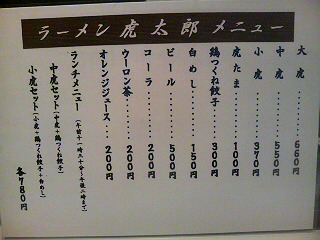 ラーメン 虎太郎 メニュー
大虎............660円
中虎............550円
小虎............370円
虎たま............100円
鶏つくね餃子......300円
白めし............150円
ビール............500円
コーラ............200円
ウーロン茶........200円
オレンジジュース...200円
ランチメニュー(午前十一時三十分〜午後二時まで)
中虎セット(中虎+鶏つくね餃子)
小虎セット(小虎+鶏つくね餃子+白めし)
各780円